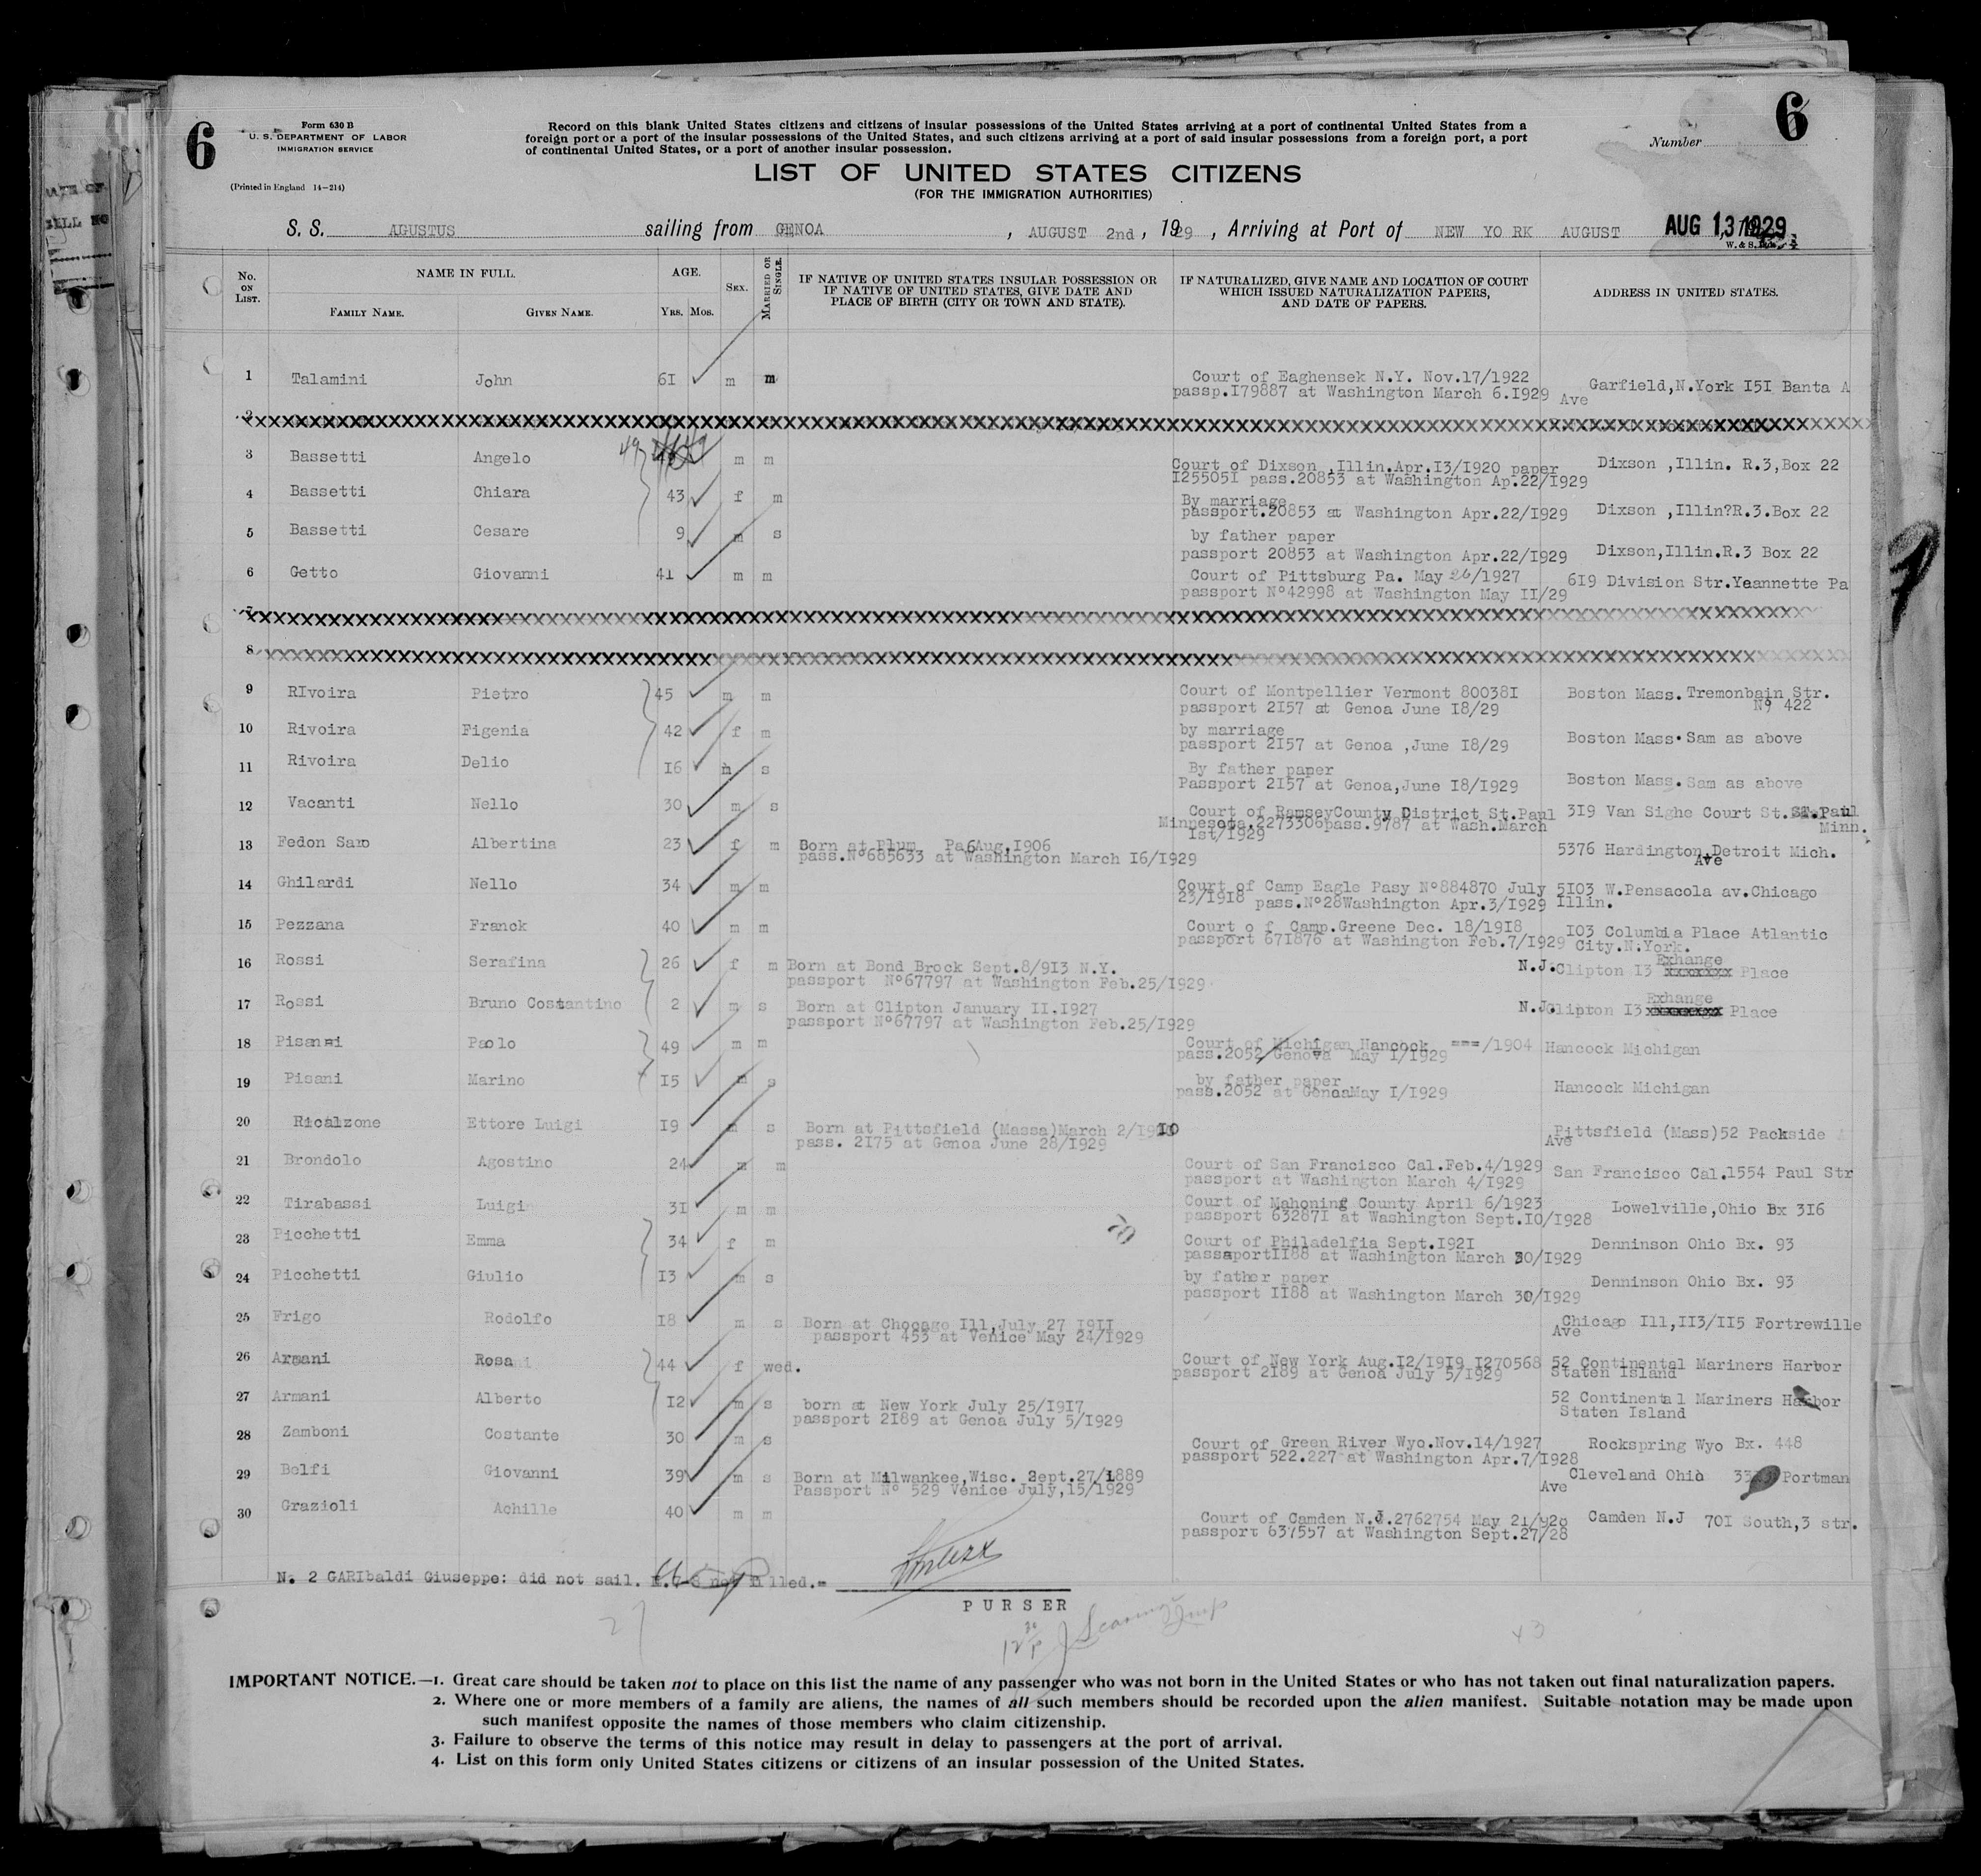 6
Form 630 B
U. S. DEPARTMENT OF LABOR
IMMIGRATION SERVICE
(Printed in England 14—214)
Record on this blank United States citizens and citizens of insular possessions of the United States arriving at a port of continental United States from a
foreign port or a port of the insular possessions of the United States, and such citizens arriving at a port of said insular possessions from a foreign port, a port
of continental United States, or a port of another insular possession.
6
Number
LIST OF UNITED STATES CITIZENS
(FOR THE IMMIGRATION AUTHORITIES)
S. S. AUGUSTUS sailing from GENOA , AUGUST 2nd , 1929 , Arriving at Port of NEW YO RK AUGUST AUG 13 1929
No. ON LIST. NAME IN FULL. AGE. SEX. MARRIED OR SINGLE. IF NATIVE OF UNITED STATES INSULAR POSSESSION OR IF NATIVE OF UNITED STATES, GIVE DATE AND PLACE OF BIRTH (CITY OR TOWN AND STATE). IF NATURALIZED, GIVE NAME AND LOCATION OF COURT WHICH ISSUED NATURALIZATION PAPERS, AND DATE OF PAPERS. ADDRESS IN UNITED STATES.
FAMILY NAME. GIVEN NAME. YRS. MOS.
1 Talamini John 6I m m Court of Eaghensek N.Y. Nov.17/1922 Garfield,N.York I5I Banta A
passp.I79887 at Washington March 6.I929 Ave
2
3 Bassetti Angelo 49 m m Court of Dixson ,Illin.Apr.I3/I920 paper Dixson ,Illin. R.3,Box 22
I25505I pass.20853 at Washington Ap.22/I929
4 Bassetti Chiara 43 f m By marriage
passport.20853 at Washington Apr.22/I929 Dixson ,Illin?R.3.Box 22
5 Bassetti Cesare 9 m s by father paper
passport 20853 at Washington Apr.22/I929 Dixson,Illin.R.3 Box 22
6 Getto Giovanni 41 m m Court of Pittsburg Pa. May 26/1927 6I9 Division Str.Yeannette Pa
passport Nº42998 at Washington May II/29
7
8
9 RIvoira Pietro 45 m m Court of Montpellier Vermont 80038I Boston Mass. Tremonbain Str.
passport 2I57 at Genoa June I8/29 Nº 422
10 Rivoira Figenia 42 f m by marriage
passport 2I57 at Genoa ,June I8/29 Boston Mass. Sam as above
11 Rivoira Delio I6 m s By father paper
Passport 2I57 at Genoa,June I8/I929 Boston Mass. Sam as above
12 Vacanti Nello 30 m s Court of RamseyCounty District St.Paul 3I9 Van Sighe Court St. St.Paul
Minnesota.2273306pass.9787 at Wash.March Minn.
Ist/I929
13 Fedon Saro Albertina 23 f m Born at Plum Pa6Aug.I906
pass.Nº685633 at Washington March I6/I929 5376 Hardington Detroit Mich.
Ave
14 Ghilardi Nello 34 m m Court of Camp Eagle Pasy Nº884870 July 5I03 W.Pensacola av.Chicago
23/I9I8 pass.Nº28Washington Apr.3/I929 Illin.
15 Pezzana Franck 40 m m Court o f Camp.Greene Dec. I8/I9I8 I03 Columbia Place Atlantic
passport 671876 at Washington Feb.7/I929 City.N.York.
16 Rossi Serafina 26 f m Born at Bond Brock Sept.8/9I3 N.Y. N.J.Clipton I3 Exhange Place
passport Nº67797 at Washington Feb.25/I929
17 Rossi Bruno Costantino 2 m s Born at Clipton January II.I927 N.J.Clipton I3 Exhange Place
passport Nº67797 at Washington Feb.25/I929
18 Pisanni Paolo 49 m m Court of Michigan Hancock ===/1904 Hancock Michigan
pass.2052 Genova May I/I929
19 Pisani Marino I5 m s by father paper
pass.2052 at GenoaMay I/I929 Hancock Michigan
20 Ricalzone Ettore Luigi I9 m s Born at Pittsfield (Massa)March 2/I910 Pittsfield (Mass)52 Packside
pass. 2I75 at Genoa June 28/I929 Ave
21 Brondolo Agostino 24 m m Court of San Francisco Cal.Feb.4/I929 San Francisco Cal.I554 Paul Str
passport at Washington March 4/I929
22 Tirabassi Luigi 3I m m Court of Mahoning County April 6/I923 Lowelville,Ohio Bx 3I6
passport 63287I at Washington Sept.I0/I928
23 Picchetti Emma 34 f m Court of Philadelfia Sept.I92I Denninson Ohio Bx. 93
passaportII88 at Washington March 30/I929
24 Picchetti Giulio I3 m s by father paper Denninson Ohio Bx. 93
passport II88 at Washington March 30/I929
25 Frigo Rodolfo I8 m s Born at Chocago Ill,July 27 I9II Chicago Ill,II3/II5 Fortrewille
passport 453 at Venice May 24/I929 Ave
26 Armani Rosa 44 f wed. Court of New York Aug.I2/I9I9 I270568 52 Continental Mariners Harbor
passport 2I89 at Genoa July 5/I929 Staten Island
27 Armani Alberto I2 m s born at New York July 25/I9I7 52 Continental Mariners Harbor
passport 2I89 at Genoa July 5/I929 Staten Island
28 Zamboni Costante 30 m s Court of Green River Wyo.Nov.I4/I927 Rockspring Wyo Bx. 448
passport 522.227 at Washington Apr.7/I928
29 Belfi Giovanni 39 m s Born at Milwankee,Wisc. Sept.27/1889 Cleveland Ohio Portman
Passport Nº 529 Venice July,I5/I929 Ave
30 Grazioli Achille 40 m m Court of Camden N.J.2762754 May 21/928 Camden N.J 70I South,3 str.
passport 637557 at Washington Sept.27/28
N. 2 GARIbaldi Giuseppe: did not sail. N.7-8 not filled.=
PURSER
IMPORTANT NOTICE.—1. Great care should be taken not to place on this list the name of any passenger who was not born in the United States or who has not taken out final naturalization papers.
2. Where one or more members of a family are aliens, the names of all such members should be recorded upon the alien manifest. Suitable notation may be made upon
such manifest opposite the names of those members who claim citizenship.
3. Failure to observe the terms of this notice may result in delay to passengers at the port of arrival.
4. List on this form only United States citizens or citizens of an insular possession of the United States.